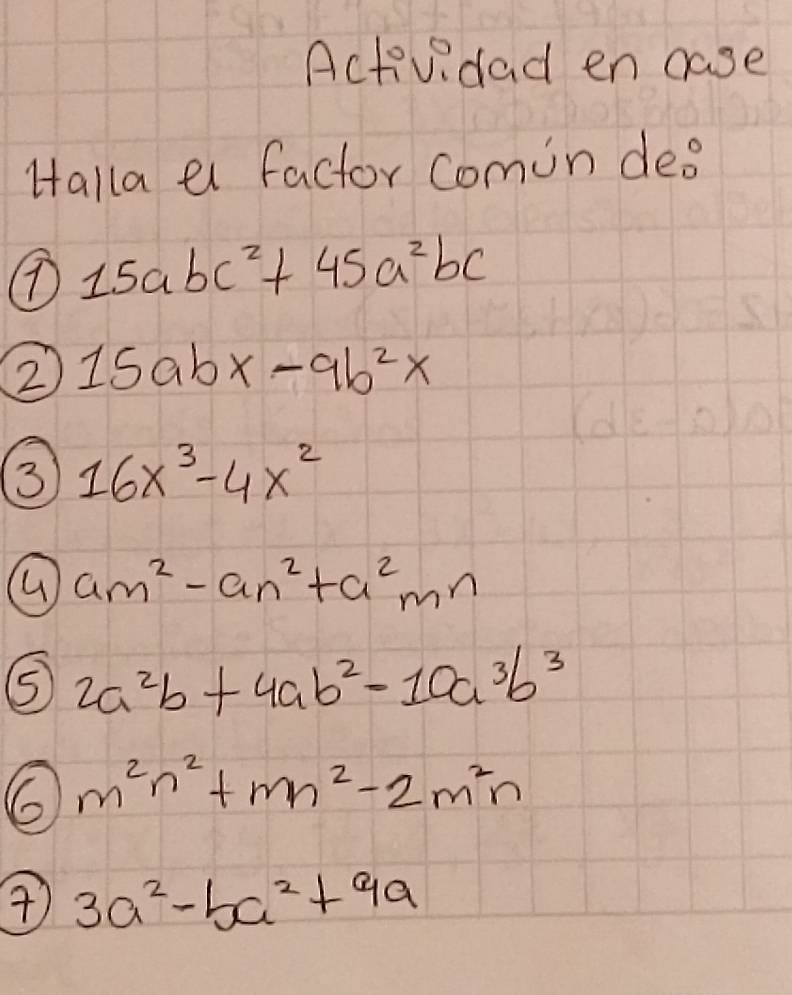 Actividad en case
Halla el factor común de:
① 15abc² + 45a²bc
② 15abx - 9b²x
③ 16x³ - 4x²
④ am² - an² + a²mn
⑤ 2a²b + 4ab² - 10a³b³
⑥ m²n² + mn² - 2m²n
⑦ 3a² - ba² + 9a